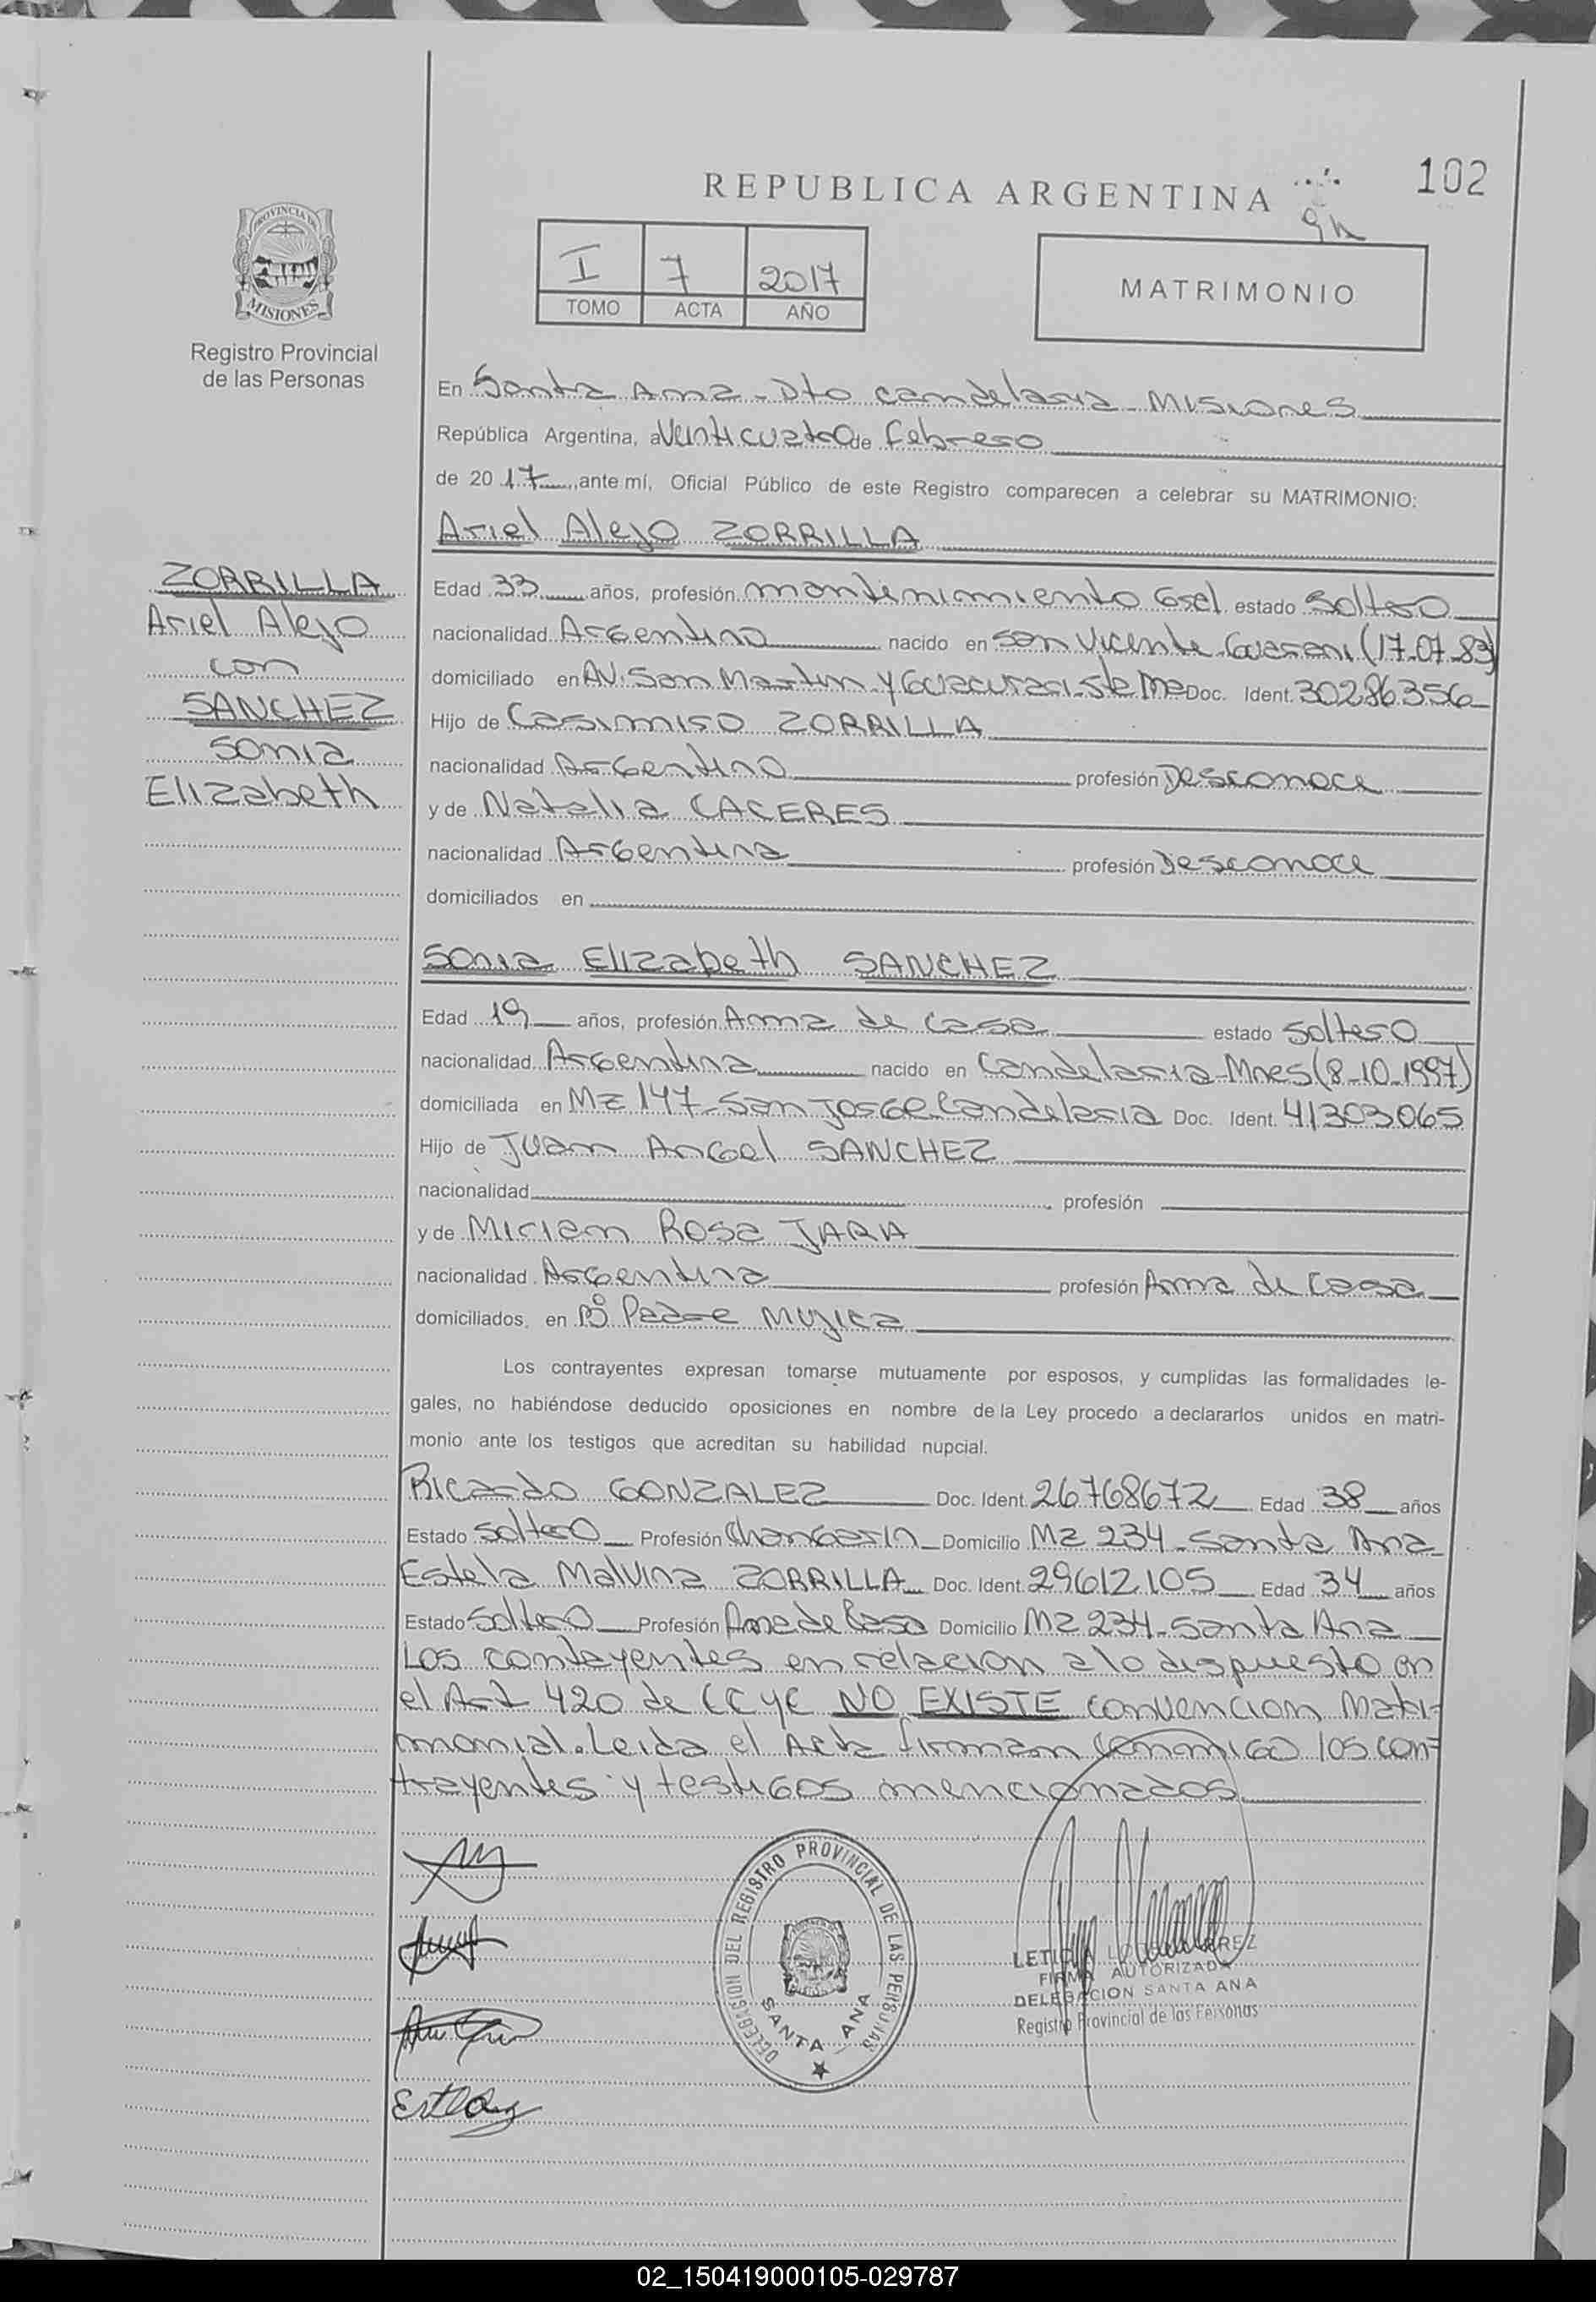 REPUBLICA ARGENTINA
102
PROVINCIA DE
MISIONES
Registro Provincial
de las Personas
I 7 2017
TOMO ACTA AÑO
MATRIMONIO
En Santa Ana - Dto Candelaria - Misiones
República Argentina, a Veinticuatro de Febrero
de 2017, ante mí, Oficial Público de este Registro comparecen a celebrar su MATRIMONIO:
Ariel Alejo ZORRILLA
ZORRILLA
Ariel Alejo
con
SANCHEZ
Sonia
Elizabeth
Edad 33 años, profesión mantenimiento Gral estado Soltero
nacionalidad Argentino nacido en San Vicente-Guarani (17-07-83)
domiciliado en AV. San Martin y Guacurari-Sta Ana Doc. Ident. 30286356
Hijo de Casimiro ZORRILLA
nacionalidad Argentino profesión Desconoce
y de Natalia CACERES
nacionalidad Argentina profesión Desconoce
domiciliados en
Sonia Elizabeth SANCHEZ
Edad 19 años, profesión Ama de Casa estado Soltero
nacionalidad Argentina nacido en Candelaria-Mnes (8-10-1997)
domiciliada en Mz 147-San Jorge-Candelaria Doc. Ident. 41303065
Hijo de Juan Angel SANCHEZ
nacionalidad profesión
y de Miriam Rosa JARA
nacionalidad Argentina profesión Ama de Casa
domiciliados en Bº Padre Mujica
Los contrayentes expresan tomarse mutuamente por esposos, y cumplidas las formalidades le-
gales, no habiéndose deducido oposiciones en nombre de la Ley procedo a declararlos unidos en matri-
monio ante los testigos que acreditan su habilidad nupcial.
Ricardo GONZALEZ Doc. Ident. 26768672 Edad 38 años
Estado Soltero Profesión Changarin Domicilio Mz 234 - Santa Ana
Estela Malvina ZORRILLA Doc. Ident. 29612105 Edad 34 años
Estado Soltero Profesión Ama de Casa Domicilio Mz 234 - Santa Ana
Los contayentes en relacion a lo dispuesto en
el Art 420 de CCyC NO EXISTE convencion Matri-
monial. Leida el Acta firman conmigo los con-
trayentes y testigos mencionados
DELEGACION DEL REGISTRO PROVINCIAL DE LAS PERSONAS
SANTA ANA
FIRMA AUTORIZADA
DELEGACION SANTA ANA
Registro Provincial de las Personas
02_150419000105-029787